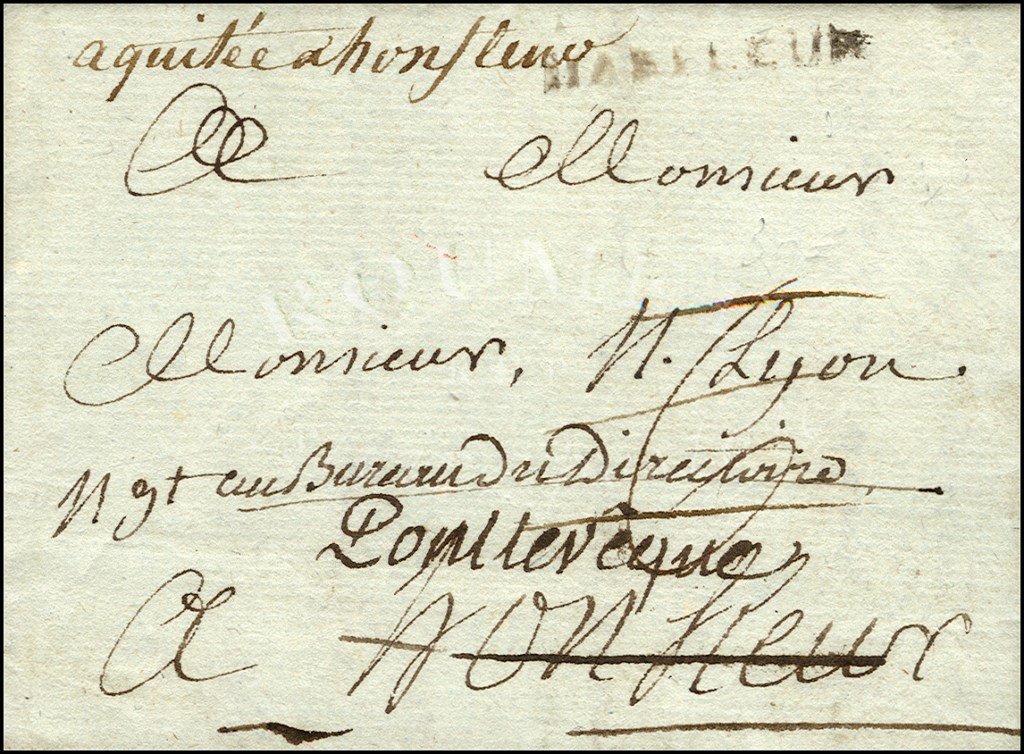 aquitée a honfleur HARFLEUR
A Monsieur
Monsieur, N. Lyon.
Ngt au Bureau Du Directoire
Pontlevêque
A Honfleur